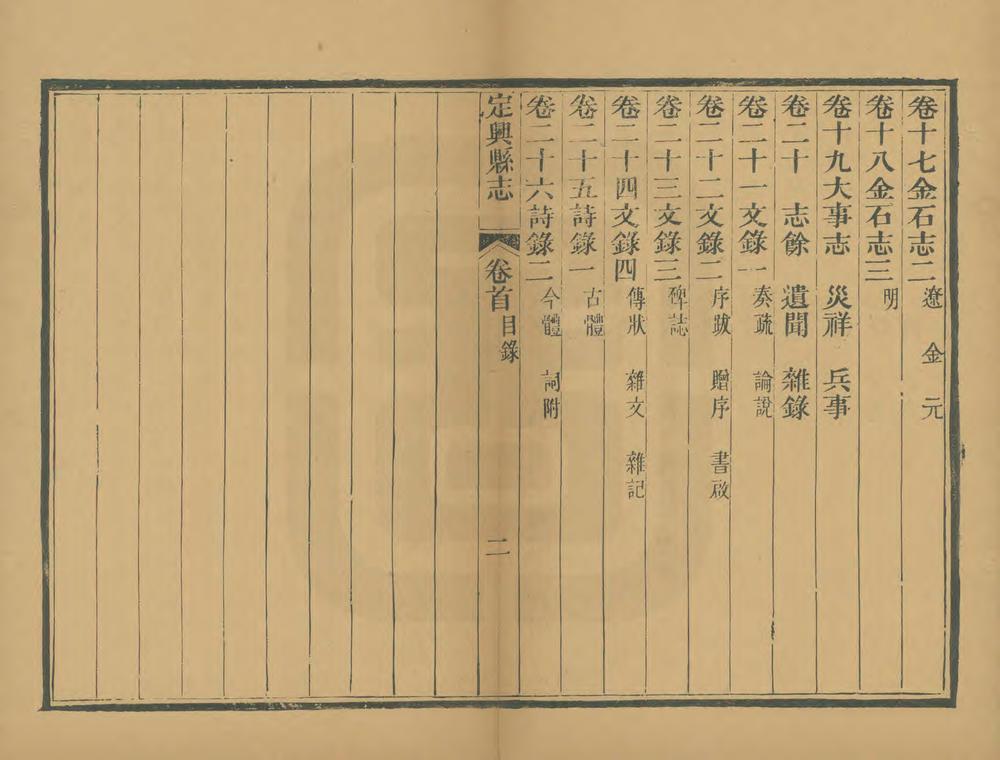 卷十七金石志二 遼 金 元
卷十八金石志三 明
卷十九大事志 災祥 兵事
卷二十 志餘 遺聞 雜錄
卷二十一文錄一 奏疏 論說
卷二十二文錄二 序跋 贈序 書啟
卷二十三文錄三 碑誌
卷二十四文錄四 傳狀 雜文 雜記
卷二十五詩錄一 古體
卷二十六詩錄二 今體 詞附
定興縣志 卷首 目錄 二